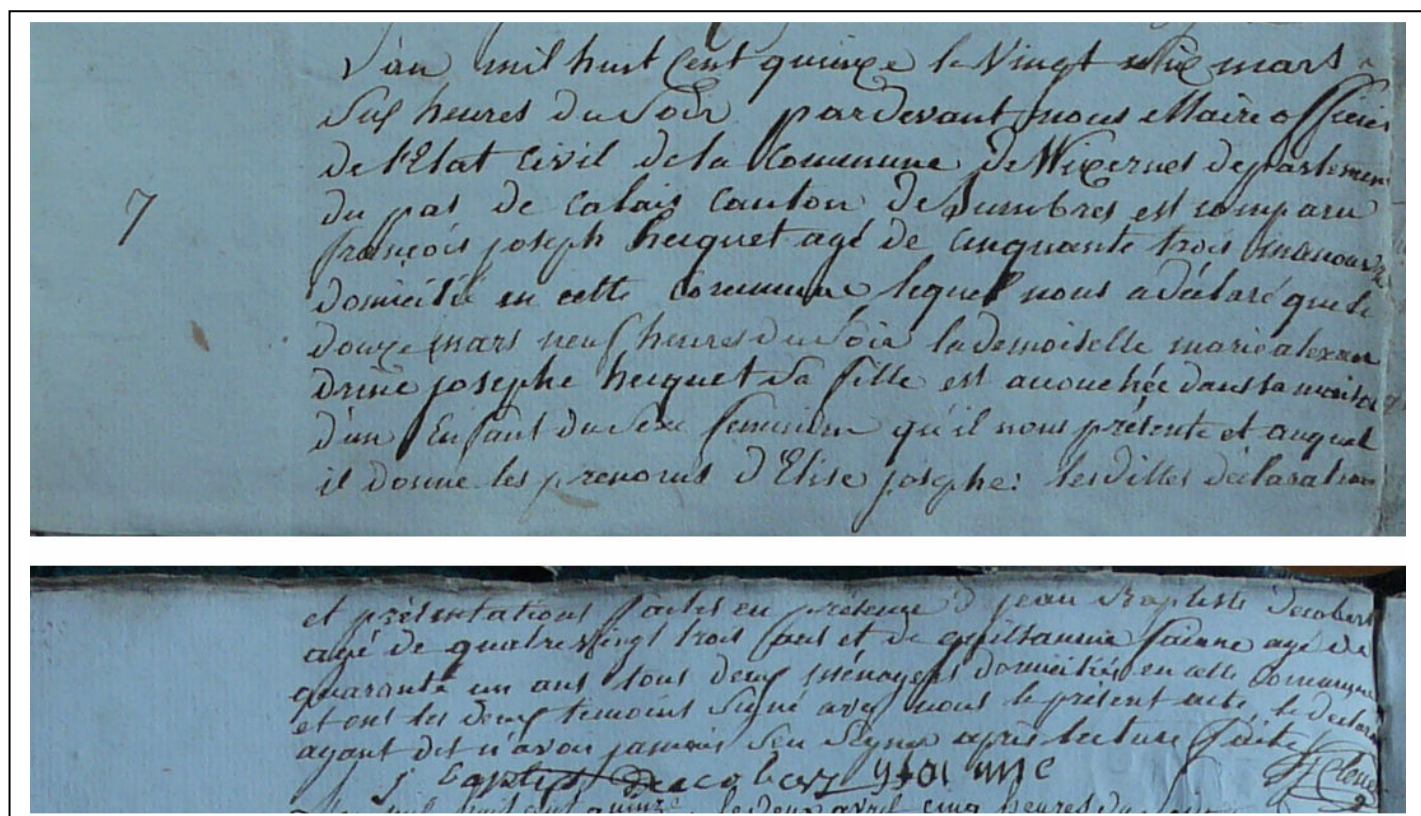 L'an mil huit Cent quinze le Vingt mars a
Six heures du Soir pardevant nous Maire officier
de l'Etat Civil de la Commune de Wizernes departement
7
du pas de Calais Canton de Lumbres est comparu
françois joseph hecquet agé de Cinquante trois manouvrier
domicilié en cette Commune lequel nous a déclaré que le
douze mars neuf heures du Soir la demoiselle marie alexan
drine josephe hecquet Sa fille est accouchée dans sa maison
d'un Enfant du Sexe feminin qu'il nous présente et auquel
il donne les prenoms d'Elise josephe: lesdittes déclaration
et présentations faites en présence d jean Baptiste decobert
agé de quatre Vingt trois ans et de guillaumme agé de
quarante un ans tous deux ménagers domiciliés en cette Commune
et ont les deux temoins Signé avec nous le présent acte, le declarant
ayant dit n'avoir jamais Seu Signer après lecture faite
j Baptist decobert
mil huit cent quinze le deux avril cinq heures du